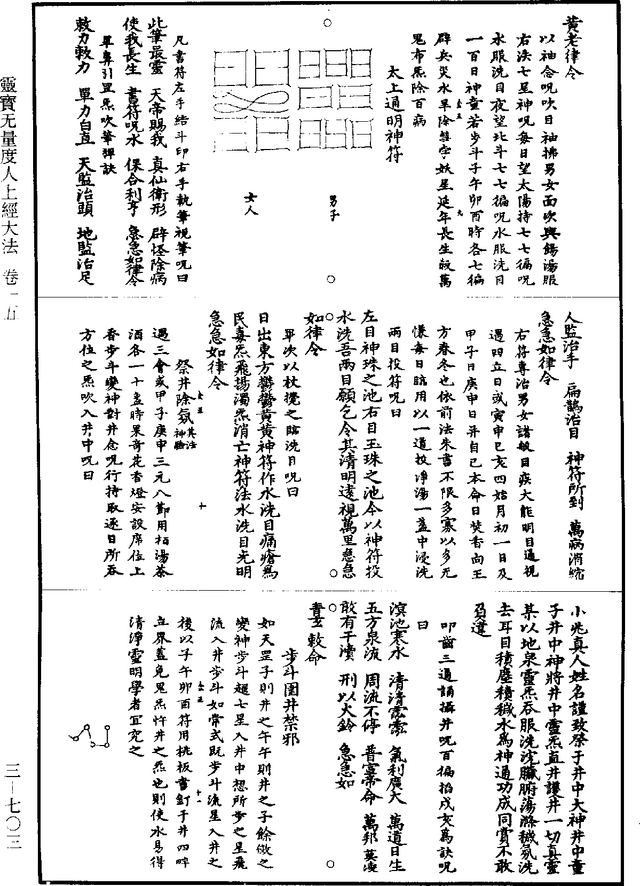 黃老律令
以袖念呪吹目袖拂男女面吹與錫湯服
右決七星神呪每日望太陽持七七徧呪
水服洗目夜望北斗七七徧呪水服洗目
一百日神童若步斗子午卯酉時各七徧
辟兵災水旱除
妖星延年長生
萬
鬼布炁除百病
太上通明神符
男子
女人
凡書符左手結斗印右手執筆視筆呪曰
此筆最靈 天帝賜我 真仙衛形 辟怪除病
使我長生 書符呪水 保合利亨 急急如律令
單鼻引罡炁吹筆彈訣
敕力敕力 單力自直 天監治頭 地監治足
人監治手 扁鵲治目 神符所到 萬病消縮
急急如律令
右符專治男女諸般目疾大能明目通視
遇四立日或寅申巳亥四始月初一日及
甲子日庚申日并自己本命日焚香向王
方春冬也依前法朱書不限多寡以多尤
懐每日臨用以一道投淨湯一盞中浸洗
兩目投符呪曰
左目神珠之池右目玉珠之池令以神符投
水洗吾兩目願乞令其清明遠視萬里急急
如律令
單次以杖攪之臨洗目呪曰
日出東方鬱鬱黃黃神符作水洗目痛瘡爲
民毒炁飛揚濁炁消亡神符法水洗目光明
急急如律令
祭井除氛 其治神驗
遇三會或甲子庚申三元八節用栢湯茶
酒各一十盞時果奇花香燈安設席位上
香步斗變神對井念呪行持取逐日所吞
方位之炁吹入井中呪曰
小兆真人姓名謹致祭于井中大神井中童
子井中神將井中靈炁直井護井一切真靈
某以地泉靈炁吞服洗浣臟腑蕩滌穢氛洗
去耳目積塵積穢水爲神通功成同賞不敢
召違
叩齒三通誦攝井呪百徧掐戌亥爲訣呪
曰
溟池寒水 清清澐澐 氣利廣大 萬道日生
五方泉流 周流不停 普霑帝命 萬邦
敢有干瀆 刑以火鈴 急急如
書玄敕命
步斗圍井禁邪
如天罡子則井之午午則井之子餘倣之
變神步斗躡七星入井中想所步之星飛
流入井步斗如常式既步斗流星入井之
後以子午卯酉符用桃板書釘于井四畔
立界蓋免鬼炁忤井之炁也則使水易得
清淨靈明學者宜究之
靈寶无量度人上經大法 卷二五
三－七〇三